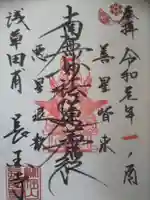 奉拝
令和元年一ノ酉
善星皆来
南無妙法蓮華経
悪星退散
浅草田甫
長国寺